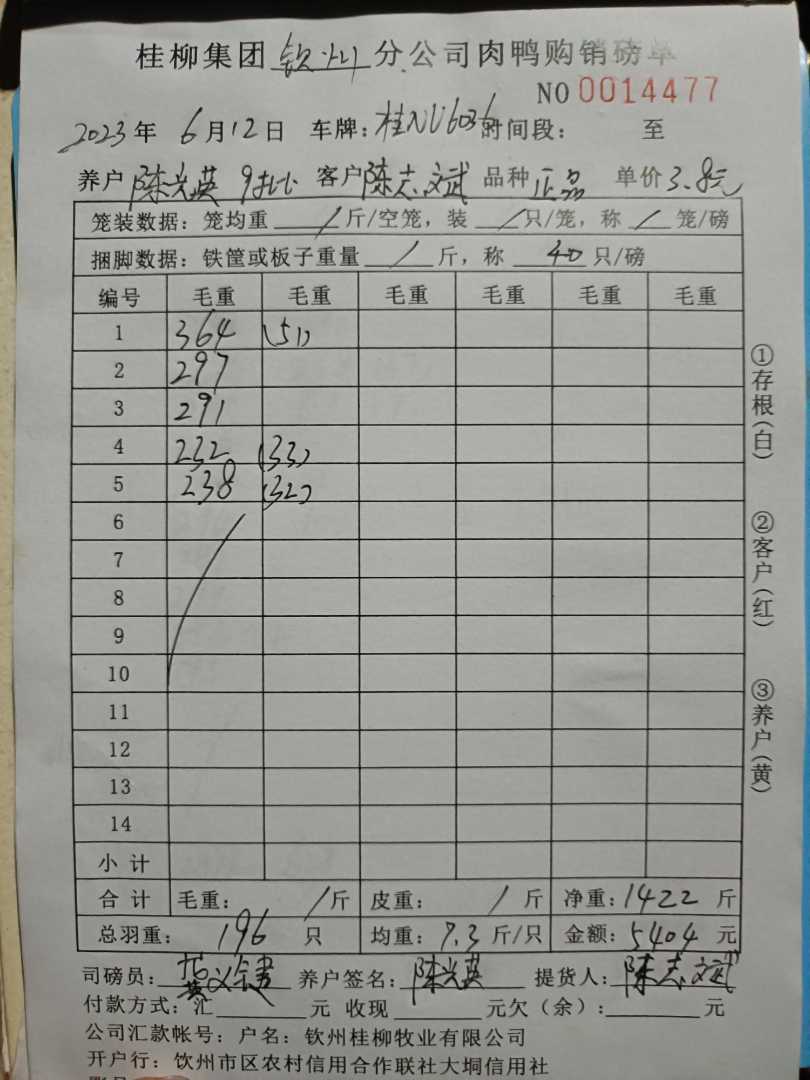 桂柳集团钦州分公司肉鸭购销磅单
NO 0014477
2023年 6月12日 车牌:桂NU6036 时间段: 至
养户陈光英 9批 客户陈志斌 品种正品 单价3.8元
笼装数据:笼均重 / 斤/空笼,装 / 只/笼,称 / 笼/磅
捆脚数据:铁筐或板子重量 / 斤,称 40 只/磅
编号 毛重 毛重 毛重 毛重 毛重 毛重
1 364 (51)
2 297
3 291
4 232 (33)
5 238 (32)
6
7
8
9
10
11
12
13
14
小计
合计 毛重: / 斤 皮重: / 斤 净重:1422 斤
总羽重: 196 只 均重:7.3斤/只 金额:5404 元
司磅员: 养户签名:陈光英 提货人:陈志斌
付款方式:汇 元 收现 元欠(余): 元
公司汇款帐号:户名:钦州桂柳牧业有限公司
开户行:饮州市区农村信用合作联社大垌信用社
①存根(白)
②客户(红)
③养户(黄)